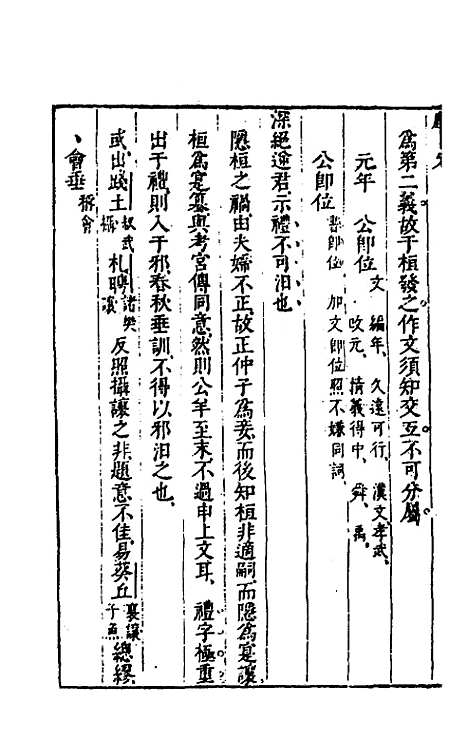 爲第二義故于桓發之作文須知交互不可分屬
元年　公卽位　文　編年、久遠可行、漢文孝武、改元、精義得中、舜、禹、
公卽位　書卽位　加文卽位照不嫌同詞、
深絕逆君、示禮不可汨也
隱桓之禍、由夫婦不正、故正仲子爲妾、而後知桓非適嗣、而隱爲寔讓
桓爲寔簒、與考宮傳同意、然則公羊至末、不過申上文耳、禮字極重
出于禮則入于邪、春秋垂訓、不得以邪汨之也、
或出踐土叔武攝札聘諸樊讓反照攝讓之非、題意不佳、易葵丘襄讓子魚總繆
、會垂稱會